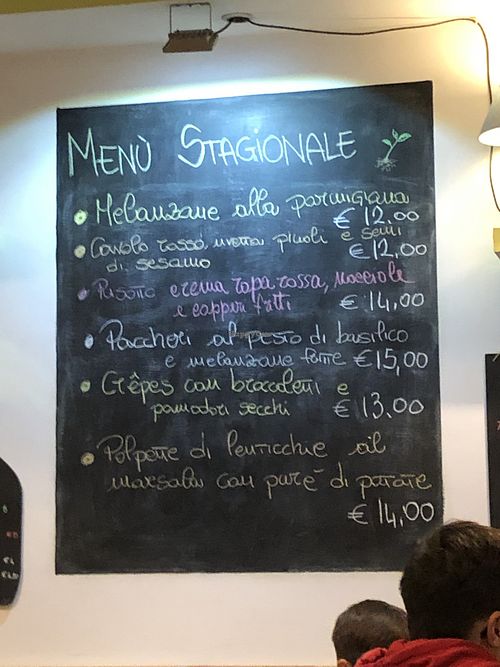 MENÙ STAGIONALE
Melanzane alla parmigiana
€ 12.00
Cavolo rosso, uvetta pinoli e semi
di sesamo €12,00
Risotto crema rapa rossa, nocciole
e capperi fritti € 14,00
Paccheri al pesto di basilico
e melanzane fritte €15,00
Crêpes con broccoletti e
pomodori secchi € 13.00
Polpette di lenticchie al
marsala con purè di patate
€ 14,00